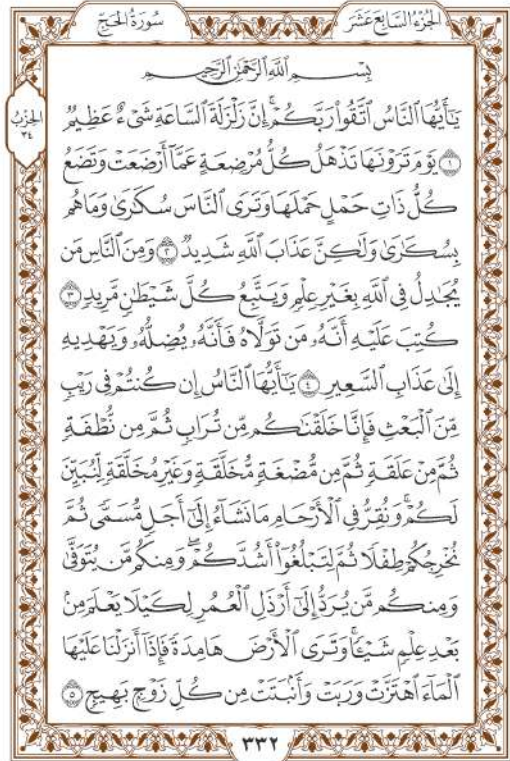 الجُزْءُ السَّابِعَ عَشَرَ
سُورَةُ الحَجِّ
بِسْمِ ٱللَّهِ ٱلرَّحْمَٰنِ ٱلرَّحِيمِ
يَٰٓأَيُّهَا ٱلنَّاسُ ٱتَّقُوا۟ رَبَّكُمْ ۚ إِنَّ زَلْزَلَةَ ٱلسَّاعَةِ شَىْءٌ عَظِيمٌ
١ يَوْمَ تَرَوْنَهَا تَذْهَلُ كُلُّ مُرْضِعَةٍ عَمَّآ أَرْضَعَتْ وَتَضَعُ
كُلُّ ذَاتِ حَمْلٍ حَمْلَهَا وَتَرَى ٱلنَّاسَ سُكَٰرَىٰ وَمَا هُم
بِسُكَٰرَىٰ وَلَٰكِنَّ عَذَابَ ٱللَّهِ شَدِيدٌ ٢ وَمِنَ ٱلنَّاسِ مَن
يُجَٰدِلُ فِى ٱللَّهِ بِغَيْرِ عِلْمٍ وَيَتَّبِعُ كُلَّ شَيْطَٰنٍ مَّرِيدٍ ٣
كُتِبَ عَلَيْهِ أَنَّهُۥ مَن تَوَلَّاهُ فَأَنَّهُۥ يُضِلُّهُۥ وَيَهْدِيهِ
إِلَىٰ عَذَابِ ٱلسَّعِيرِ ٤ يَٰٓأَيُّهَا ٱلنَّاسُ إِن كُنتُمْ فِى رَيْبٍ
مِّنَ ٱلْبَعْثِ فَإِنَّا خَلَقْنَٰكُم مِّن تُرَابٍ ثُمَّ مِن نُّطْفَةٍ
ثُمَّ مِنْ عَلَقَةٍ ثُمَّ مِن مُّضْغَةٍ مُّخَلَّقَةٍ وَغَيْرِ مُخَلَّقَةٍ لِّنُبَيِّنَ
لَكُمْ ۚ وَنُقِرُّ فِى ٱلْأَرْحَامِ مَا نَشَآءُ إِلَىٰٓ أَجَلٍ مُّسَمًّى ثُمَّ
نُخْرِجُكُمْ طِفْلًا ثُمَّ لِتَبْلُغُوٓا۟ أَشُدَّكُمْ ۖ وَمِنكُم مَّن يُتَوَفَّىٰ
وَمِنكُم مَّن يُرَدُّ إِلَىٰٓ أَرْذَلِ ٱلْعُمُرِ لِكَيْلَا يَعْلَمَ مِنۢ
بَعْدِ عِلْمٍ شَيْـًٔا ۚ وَتَرَى ٱلْأَرْضَ هَامِدَةً فَإِذَآ أَنزَلْنَا عَلَيْهَا
ٱلْمَآءَ ٱهْتَزَّتْ وَرَبَتْ وَأَنۢبَتَتْ مِن كُلِّ زَوْجٍۭ بَهِيجٍ ٥
الحِزْبُ
٣٤
٣٣٢